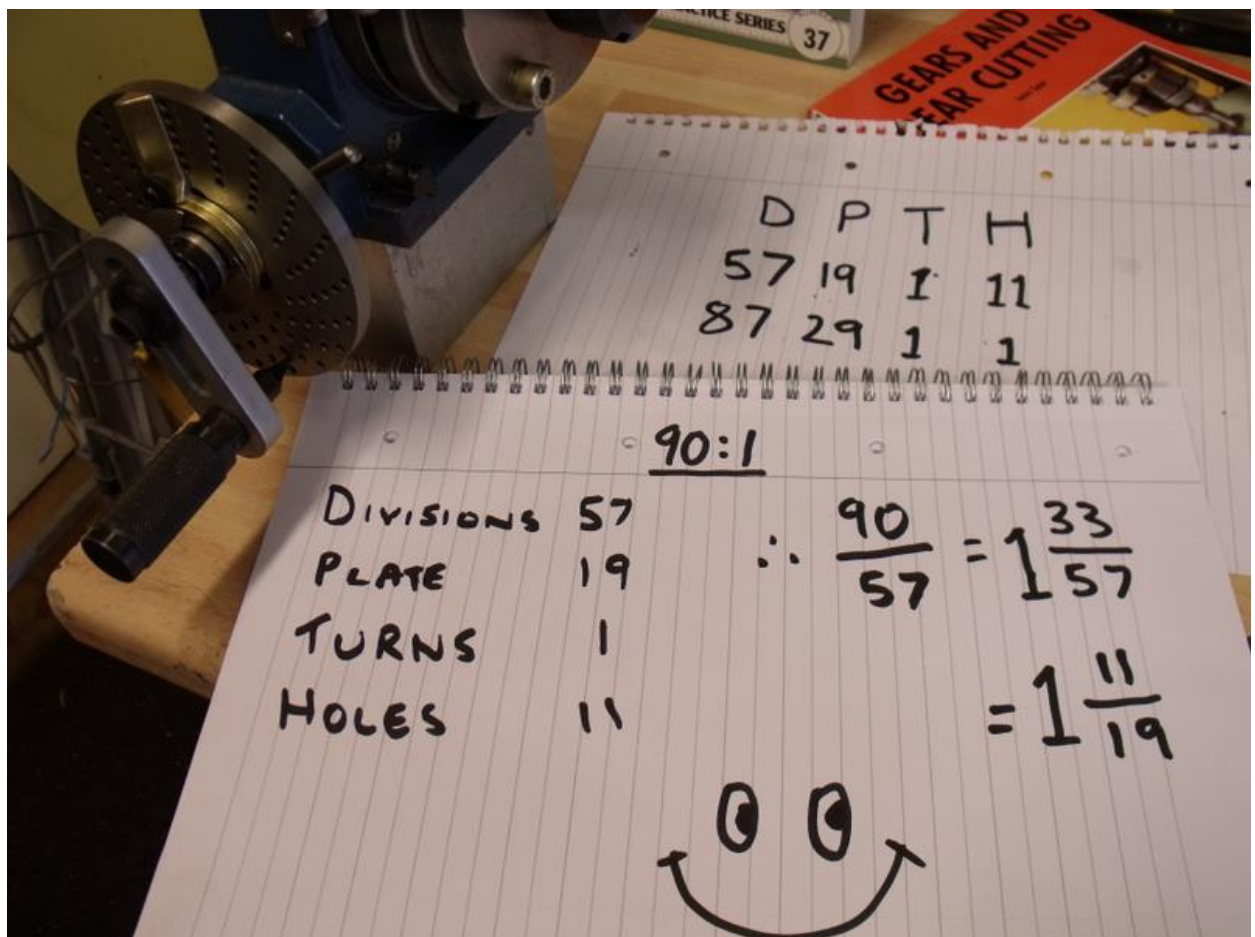 PRACTICE SERIES
37
GEARS AND
GEAR CUTTING
D P T H
57 19 1 11
87 29 1 1
90:1
DIVISIONS 57
PLATE 19
TURNS 1
HOLES 11
∴ 90/57 = 1 33/57
= 1 11/19